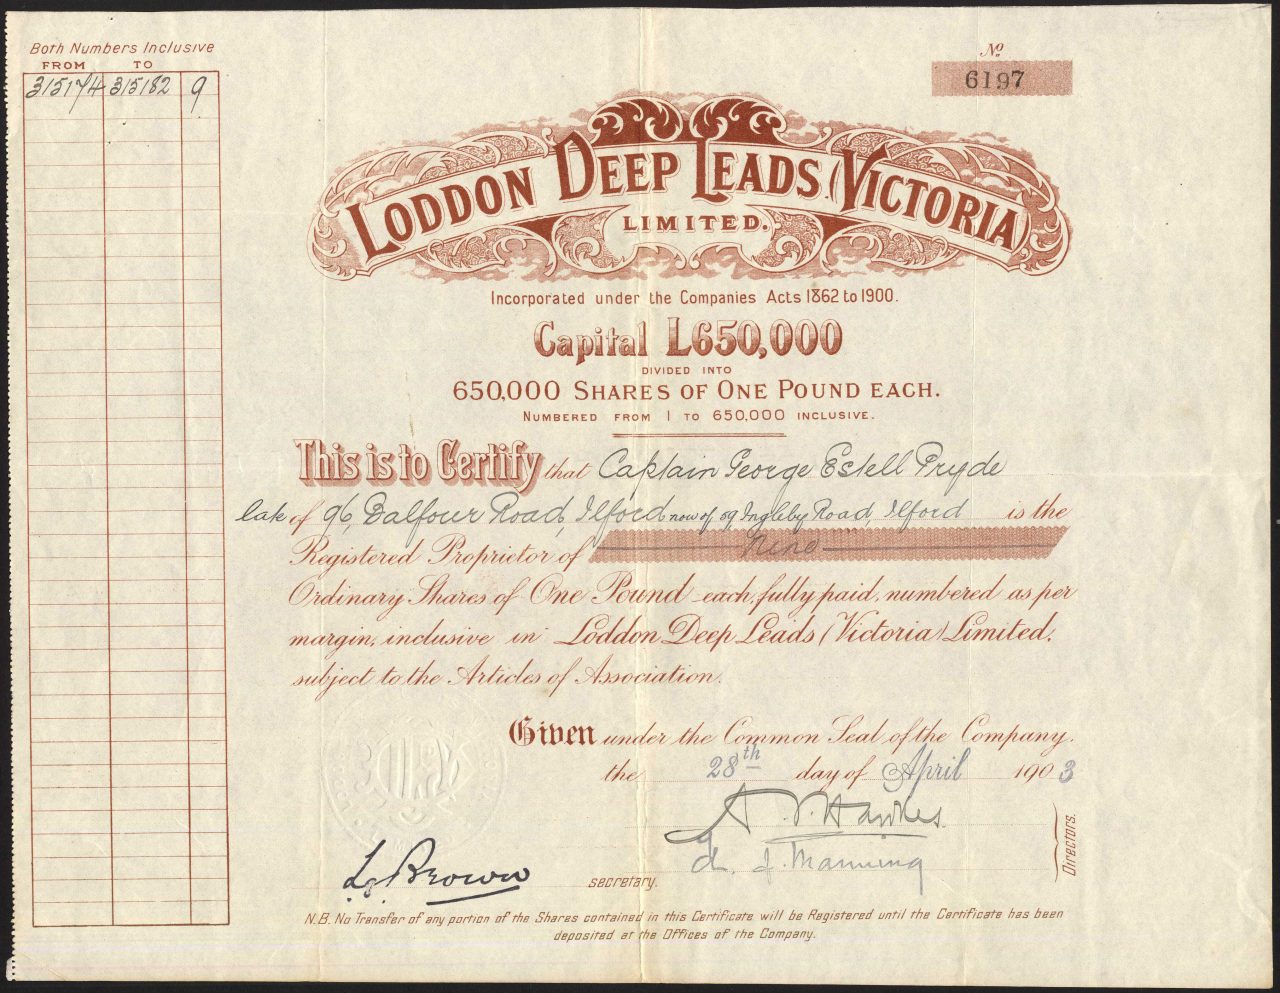 Both Numbers Inclusive
FROM TO
315174 315182 9
No
6197
LODDON DEEP LEADS (VICTORIA)
LIMITED.
Incorporated under the Companies Acts 1862 to 1900.
Capital £650,000
DIVIDED INTO
650,000 SHARES OF ONE POUND EACH.
NUMBERED FROM 1 TO 650,000 INCLUSIVE.
This is to Certify that Captain George Estell Pryde
late of 96, Balfour Road, Ilford now of 59 Ingleby Road, Ilford is the
Registered Proprietor of Nine
Ordinary Shares of One Pound each, fully paid, numbered as per
margin, inclusive in Loddon Deep Leads (Victoria) Limited,
subject to the Articles of Association.
Given under the Common Seal of the Company.
the 28th day of April 1903
Hawkes
Manning
Directors.
L. Brown
secretary.
N.B. No Transfer of any portion of the Shares contained in this Certificate will be Registered until the Certificate has been
deposited at the Offices of the Company.